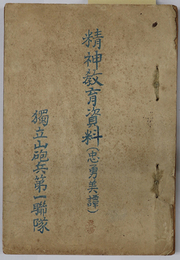 精神教育資料(忠勇美譚)
獨立山砲兵第一聯隊